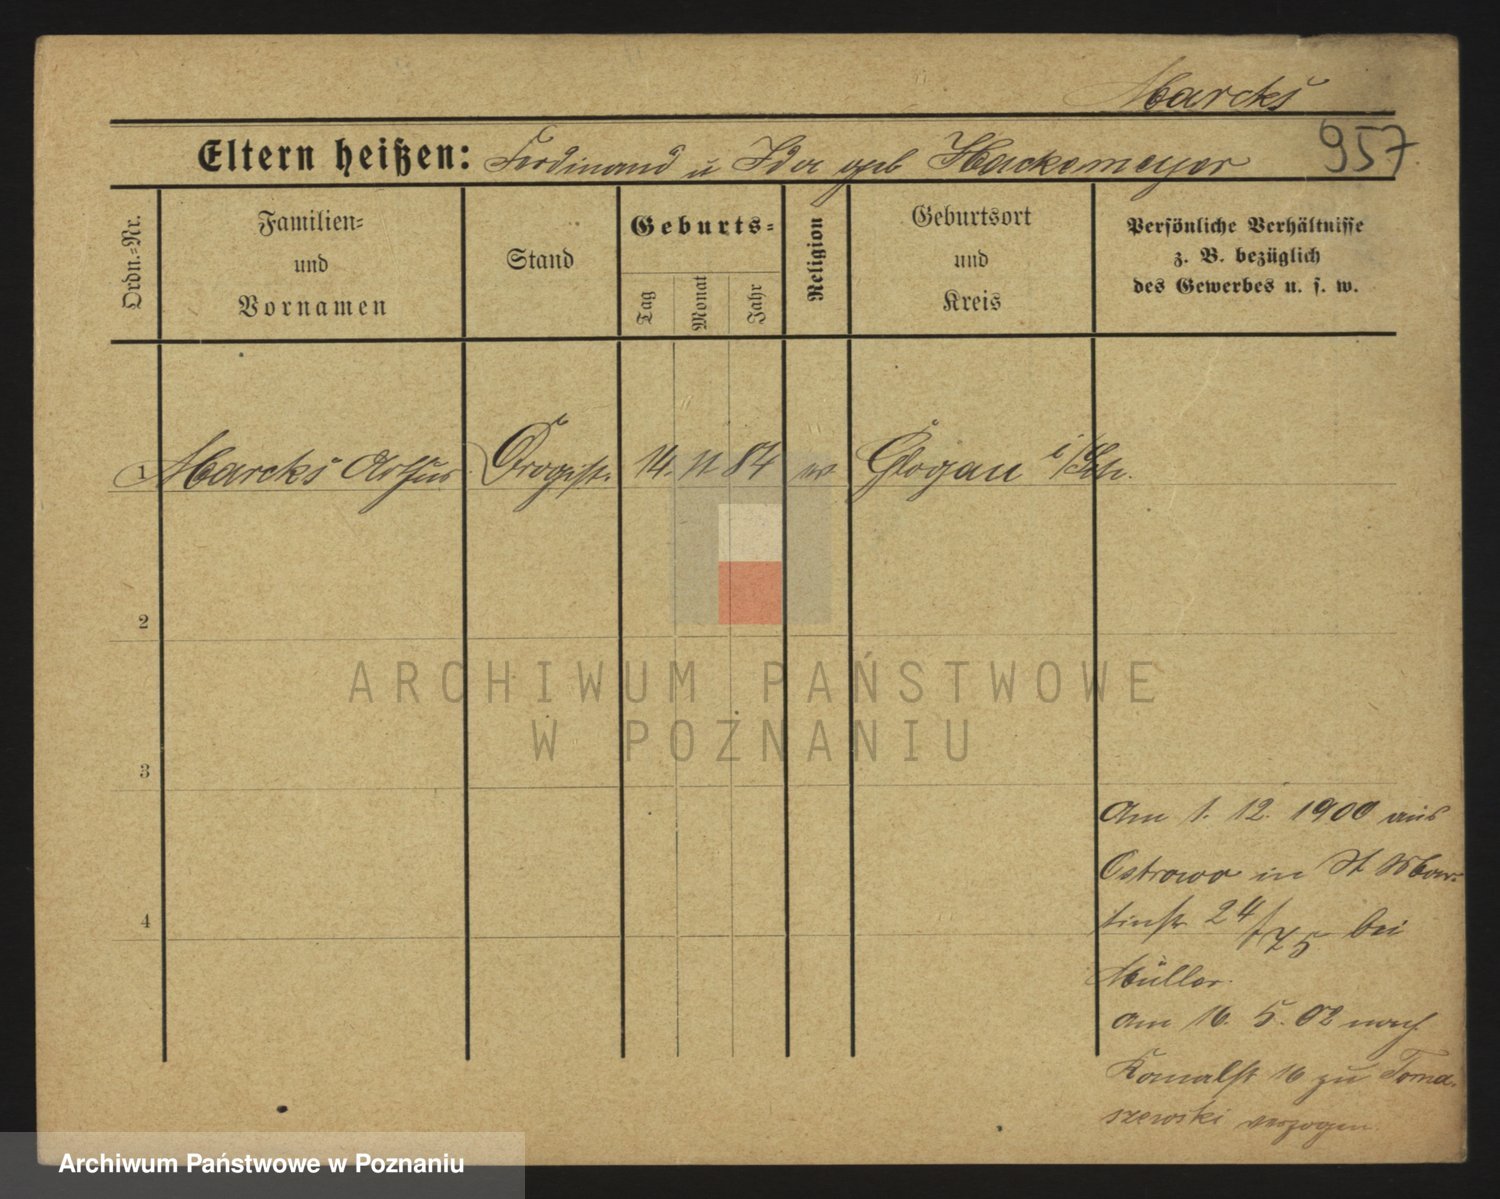 Marcks
Eltern heißen: Ferdinand u Ida geb Hackemeyer
957
Ordn.=Nr.
Familien=
und
Vornamen
Stand
Geburts=
Tag
Monat
Jahr
Religion
Geburtsort
und
Kreis
Persönliche Verhältnisse
z. B. bezüglich
des Gewerbes u. s. w.
1 Marcks Arthur Drogist. 14. 11 84 Glogau i/Schl.
2
3
4
Am 1. 12. 1900 aus
Ostrowo in St Mar=
tinstr 24/25 bei
Müller.
Am 16. 5. 02 nach
Kanalstr 16 zu Toma=
szewski verzogen.
ARCHIWUM PAŃSTWOWE
W POZNANIU
Archiwum Państwowe w Poznaniu